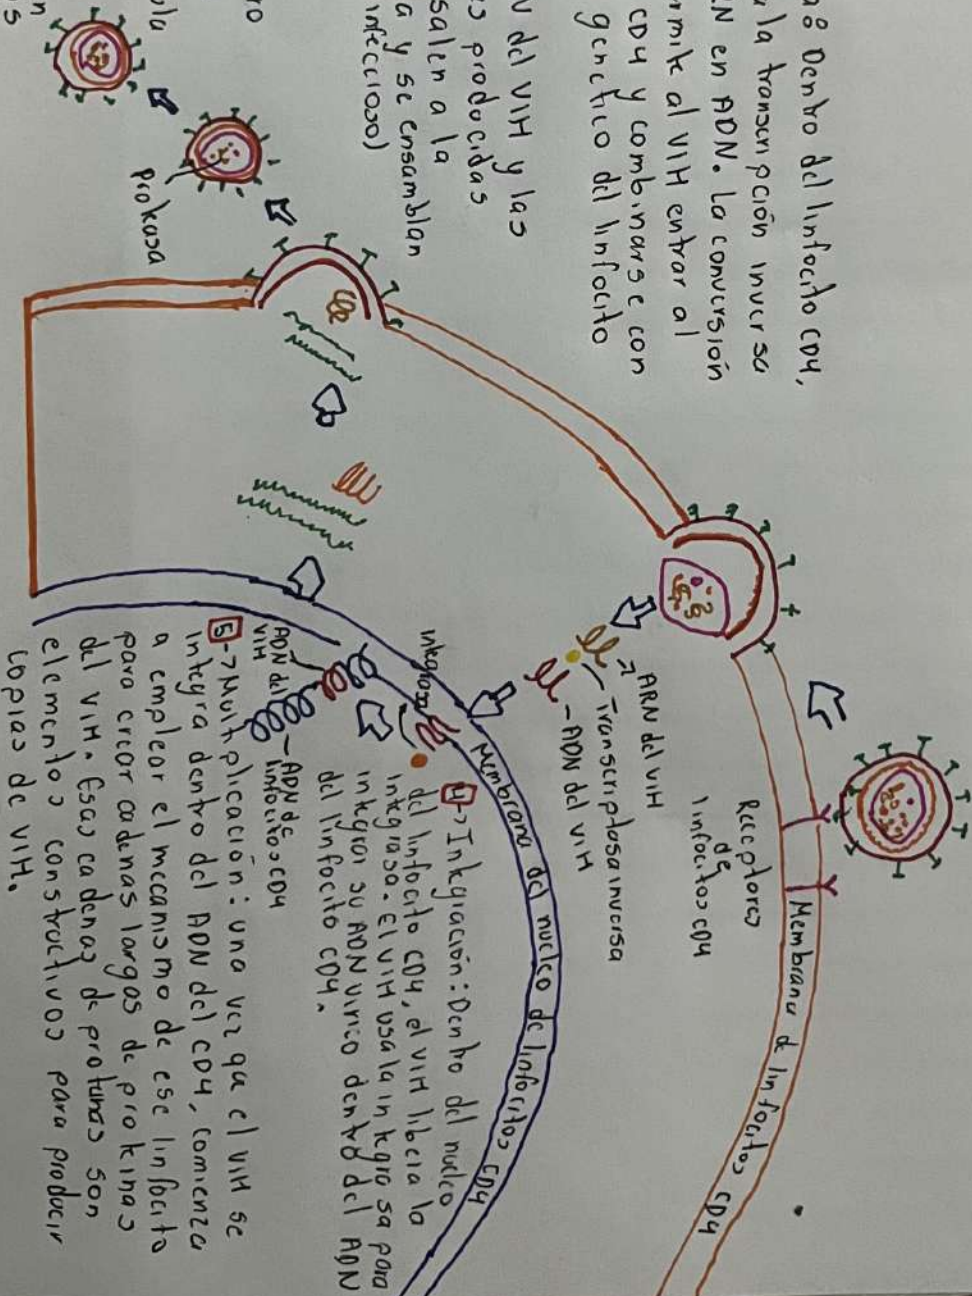 a: Dentro del linfocito CD4,
la transcripción inversa
EN en ADN. La conversión
rmite al VIH entrar al
CD4 y combinarse con
genetico del linfocito
del VIH y las
s producidas
salen a la
a y se ensamblan
infeccioso)
ro
ula
n
os
proteasa
Membrana de linfocitos CD4
Receptores
de
linfocitos CD4
ARN del VIH
Transcriptasa inversa
ADN del VIH
Membrana del nucleo de linfocitos CD4
Integrasa
4-> Integración: Dentro del nucleo
del linfocito CD4, el VIH libera la
integrasa. El VIH usa la integrasa para
integrar su ADN vírico dentro del ADN
del linfocito CD4.
ADN del
VIH
ADN de
linfocitos CD4
5-> Multiplicación: una vez que el VIH se
integra dentro del ADN del CD4, comienza
a emplear el mecanismo de ese linfocito
para crear cadenas largas de proteinas
del VIH. Esas cadenas de proteinas son
elementos constructivos para producir
copias de VIH.